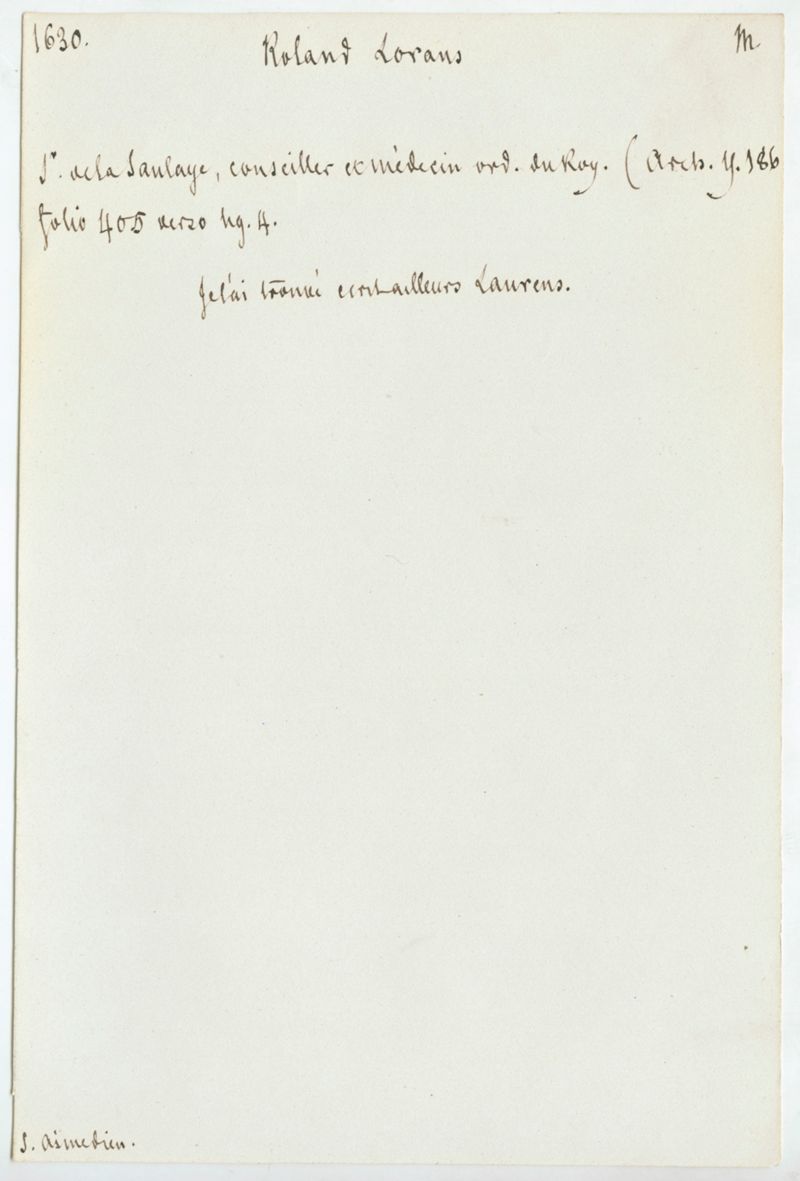 1630. Roland Lorans M
Sr. de la Saulaye, conseiller et médecin ord. du Roy. (Arch. Y. 186
folio 405 verso lig. 4.
Je l'ai trouvé ecrit ailleurs Laurens.
S.